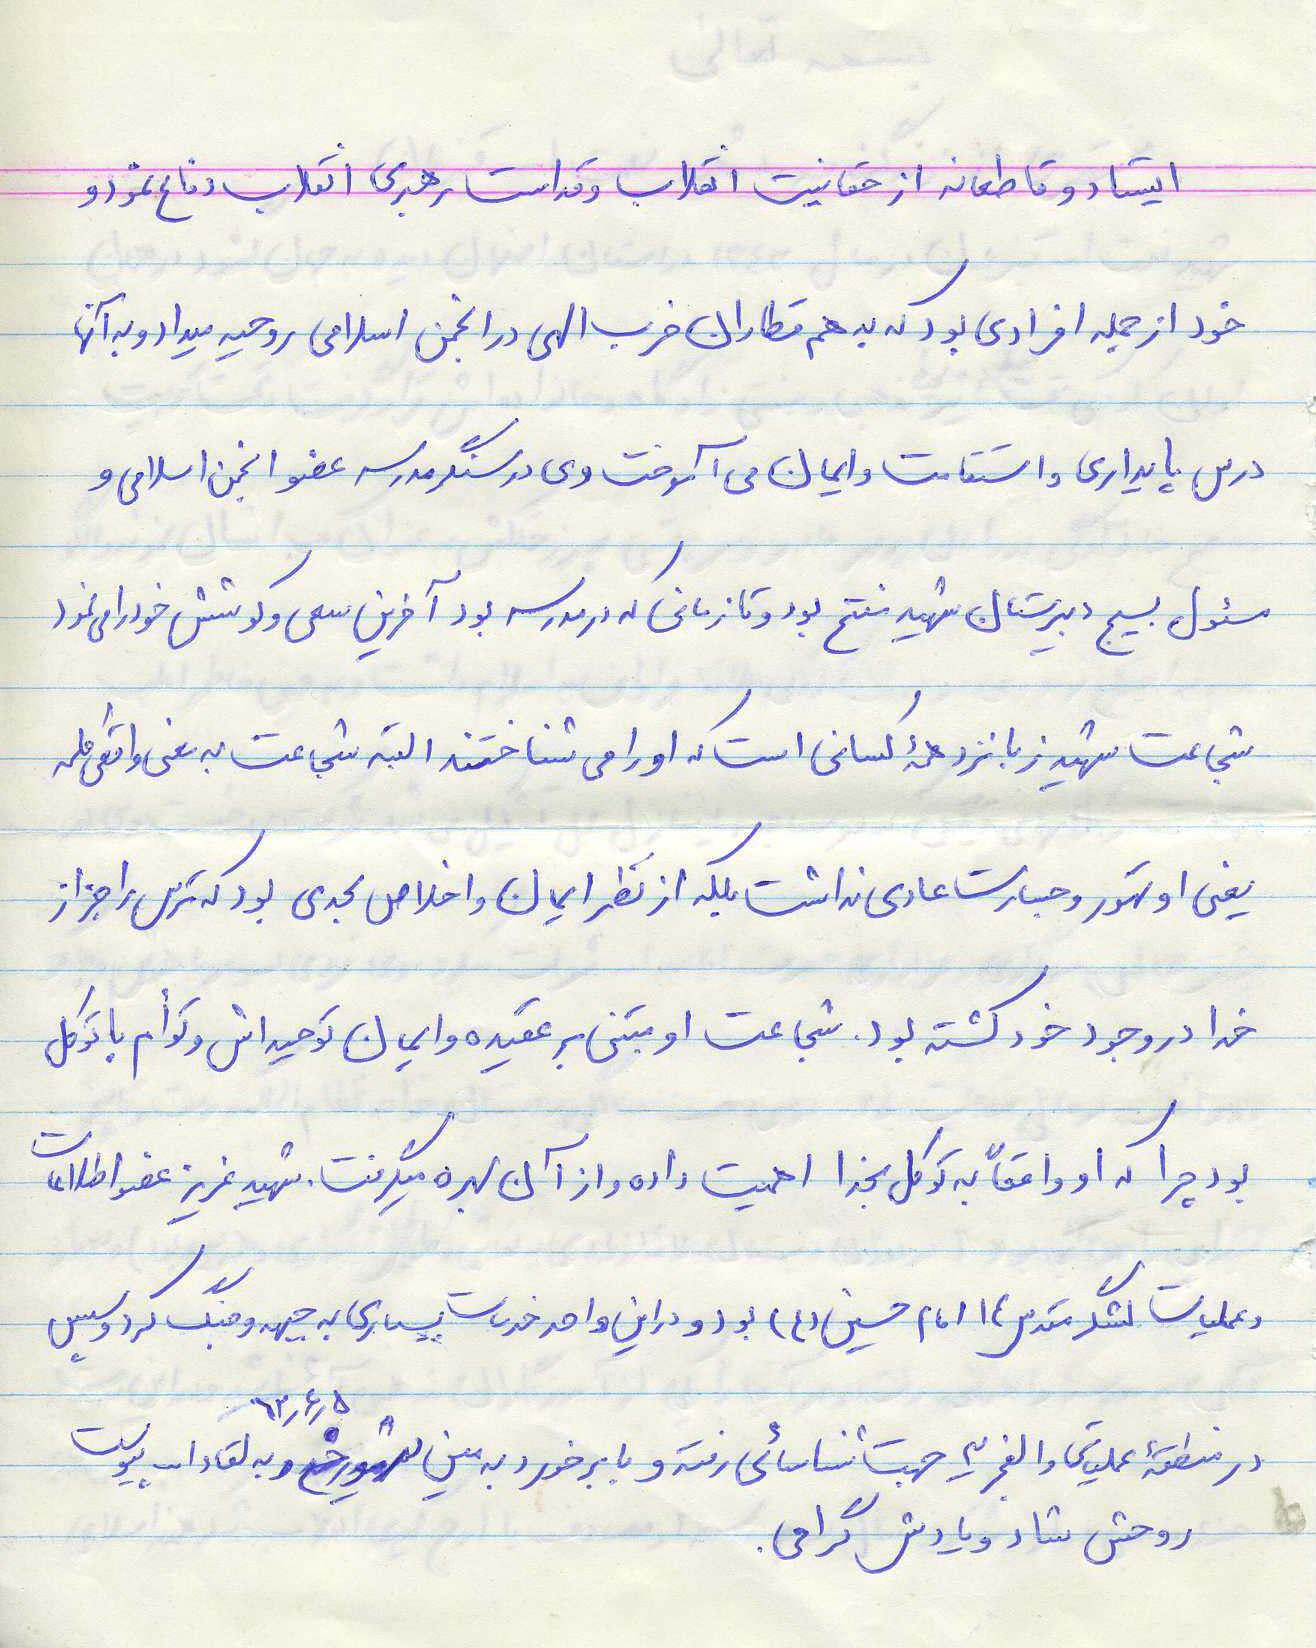 ایستاد و قاطعانه از حقانیت انقلاب و قداست رهبری انقلاب دفاع نمود و
خود از جمله افرادی بود که به هم قطاران حزب الهی در انجمن اسلامی روحیه میداد و به آنها
درس پایداری و استقامت و ایمان می آموخت وی در سنگر مدرسه عضو انجمن اسلامی و
مسئول بسیج دبیرستان شهید مفتح بود و تا زمانی که در مدرسه بود آخرین سعی و کوشش خود را می نمود
شجاعت شهید زبانزد همهٔ کسانی است که او را می شناختند البته شجاعت به معنی واقعی کلمه
یعنی او تهور و جسارت عادی نداشت بلکه از نظر ایمان و اخلاص بحدی بود که ترس را جز از
خدا در وجود خود کشته بود. شجاعت او مبتنی بر عقیده و ایمان توحیداش و توأم با توکل
بود چرا که او واقعاً به توکل بخدا اهمیت داده و از آن بهره میگرفت. شهید عزیز عضو اطلاعات
و عملیات لشگر مقدس ۱۴ امام حسین (ع) بود و در این واحد خدمات بسیاری به جبهه و جنگ کرد و سپس
۶۳٫۴٫۵
در منطقهٔ عملیاتی والفجر جهت شناسائی رفته و با برخورد به مین و به لقاءالله پیوست
روحش شاد و یادش گرامی.